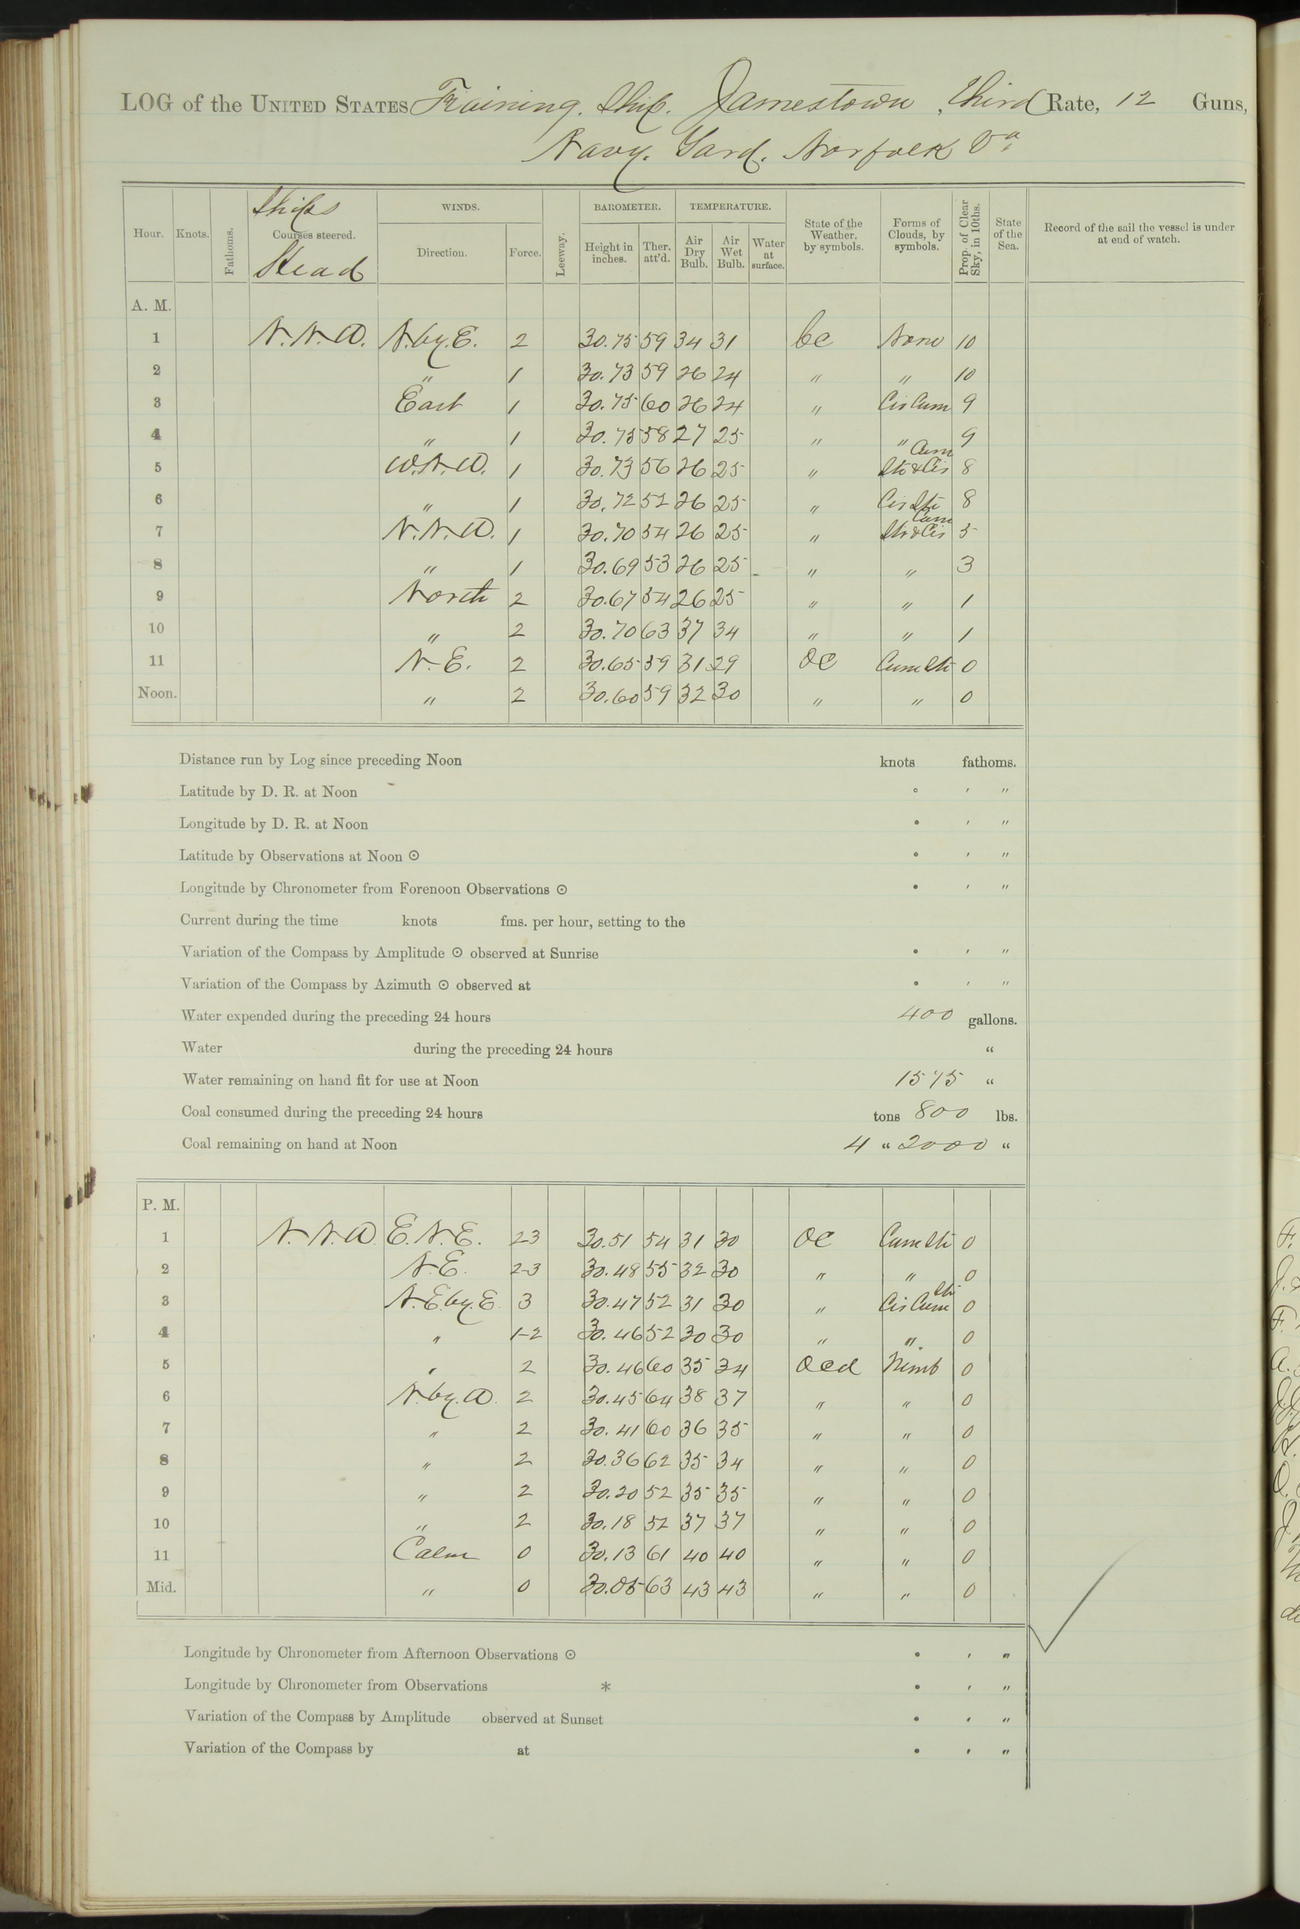 LOG of the UNITED STATES Training Ship Jamestown, third Rate, 12 Guns,
Navy Yard, Norfolk Va
Hour. Knots. Fathoms. Ships Courses steered. Head WINDS. Direction. Force. Leeway. BAROMETER. Height in inches. Ther. att'd. TEMPERATURE. Air Dry Bulb. Air Wet Bulb. Water at surface. State of the Weather, by symbols. Forms of Clouds, by symbols. Prop. of Clear Sky, in 10ths. State of the Sea. Record of the sail the vessel is under at end of watch.
A. M.
1 N.N.W. N.by.E. 2 30.75 59 34 31 bc None 10
2 " 1 30.73 59 26 24 " " 10
3 East 1 30.75 60 26 24 " Cir Cum 9
4 " 1 30.75 58 27 25 " " 9
5 W.N.W. 1 30.73 56 26 25 " Cum Str & Cir 8
6 " 1 30.72 52 26 25 " Cir Str 8
7 N.N.W. 1 30.70 54 26 25 " Cum Str & Cir 5
8 " 1 30.69 53 26 25 " " 3
9 North 2 30.67 54 26 25 " " 1
10 " 2 30.70 63 37 34 " " 1
11 N.E. 2 30.65 59 31 29 oc Cum Str 0
Noon. " 2 30.60 59 32 30 " " 0
Distance run by Log since preceding Noon knots fathoms.
Latitude by D. R. at Noon ° ′ ″
Longitude by D. R. at Noon ° ′ ″
Latitude by Observations at Noon ☉ ° ′ ″
Longitude by Chronometer from Forenoon Observations ☉ ° ′ ″
Current during the time knots fms. per hour, setting to the
Variation of the Compass by Amplitude ☉ observed at Sunrise ° ′ ″
Variation of the Compass by Azimuth ☉ observed at ° ′ ″
Water expended during the preceding 24 hours 400 gallons.
Water during the preceding 24 hours "
Water remaining on hand fit for use at Noon 1575 "
Coal consumed during the preceding 24 hours tons 800 lbs.
Coal remaining on hand at Noon 4 " 2000 "
P. M.
1 N.N.W. E.N.E. 2-3 30.51 54 31 30 oc Cum Str 0
2 N.E. 2-3 30.48 55 32 30 " " 0
3 N.E.by.E. 3 30.47 52 31 30 " Cir Cum Str 0
4 " 1-2 30.46 52 30 30 " " 0
5 " 2 30.46 60 35 34 ocd Nimb 0
6 N.by.W. 2 30.45 64 38 37 " " 0
7 " 2 30.41 60 36 35 " " 0
8 " 2 30.36 62 35 34 " " 0
9 " 2 30.20 52 35 35 " " 0
10 " 2 30.18 52 37 37 " " 0
11 Calm 0 30.13 61 40 40 " " 0
Mid. " 0 30.05 63 43 43 " " 0
Longitude by Chronometer from Afternoon Observations ☉ ° ′ ″
Longitude by Chronometer from Observations * ° ′ ″
Variation of the Compass by Amplitude observed at Sunset ° ′ ″
Variation of the Compass by at ° ′ ″